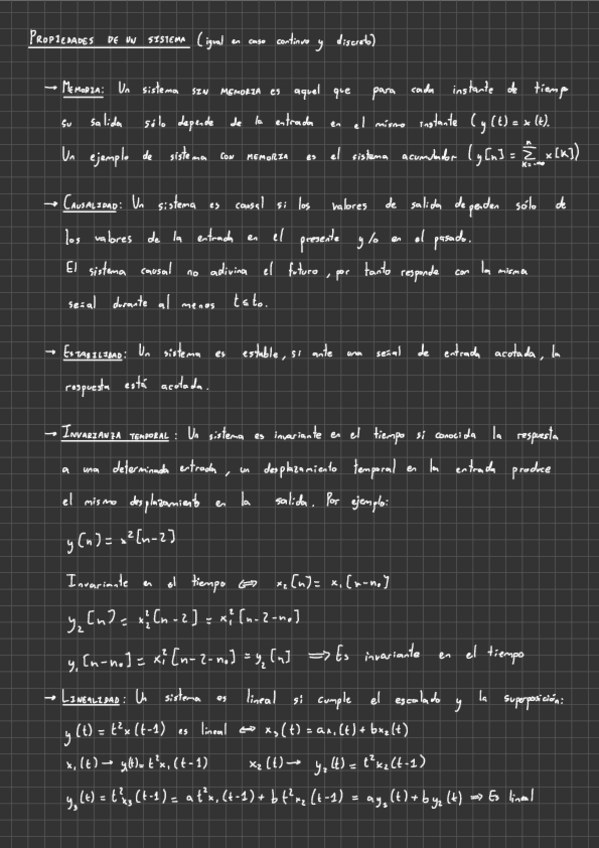 PROPIEDADES DE UN SISTEMA (igual en caso continuo y discreto)
→ MEMORIA: Un sistema SIN MEMORIA es aquel que para cada instante de tiempo
su salida sólo depende de la entrada en el mismo instante (y(t) = x(t).
Un ejemplo de sistema CON MEMORIA es el sistema acumulador (y[n] = Σ_{k=-∞}^{n} x[k])
→ CAUSALIDAD: Un sistema es causal si los valores de salida dependen sólo de
los valores de la entrada en el presente y/o en el pasado.
El sistema causal no adivina el futuro, por tanto responde con la misma
señal durante al menos t≤t₀.
→ ESTABILIDAD: Un sistema es estable, si ante una señal de entrada acotada, la
respuesta está acotada.
→ INVARIANZA TEMPORAL: Un sistema es invariante en el tiempo si conocida la respuesta
a una determinada entrada, un desplazamiento temporal en la entrada produce
el mismo desplazamiento en la salida. Por ejemplo:
y[n] = x²[n-2]
Invariante en el tiempo ⇔ x₂[n] = x₁[n-n₀]
y₂[n] = x₂²[n-2] = x₁²[n-2-n₀]
y₁[n-n₀] = x₁²[n-2-n₀] = y₂[n] ⟹ Es invariante en el tiempo
→ LINEALIDAD: Un sistema es lineal si cumple el escalado y la superposición:
y(t) = t²x(t-1) es lineal ⇔ x₃(t) = ax₁(t) + bx₂(t)
x₁(t) → y(t) = t²x₁(t-1) x₂(t) → y₂(t) = t²x₂(t-1)
y₃(t) = t²x₃(t-1) = at²x₁(t-1) + bt²x₂(t-1) = ay₁(t) + by₂(t) ⇒ Es lineal